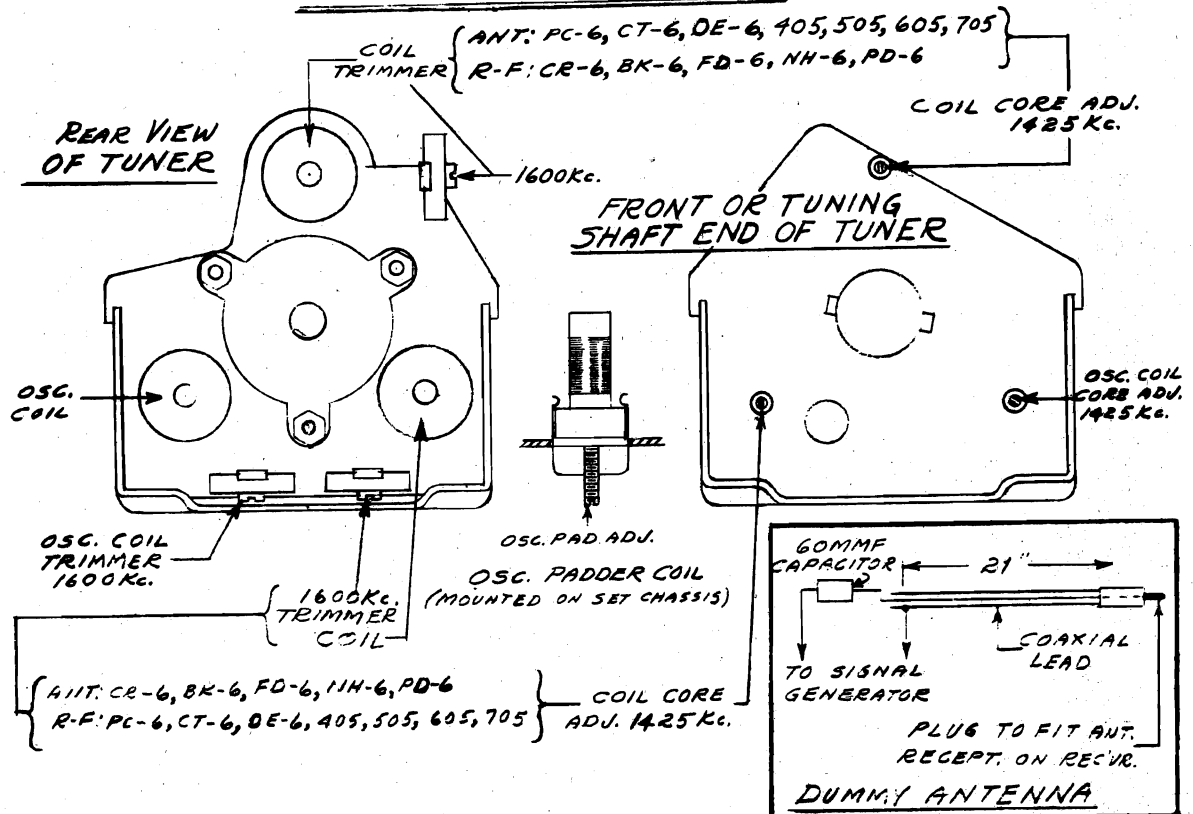 COIL
TRIMMER
ANT: PC-6, CT-6, DE-6, 405, 505, 605, 705
R-F: CR-6, BK-6, FD-6, NH-6, PD-6
COIL CORE ADJ.
1425 Kc.
REAR VIEW
OF TUNER
1600 Kc.
FRONT OR TUNING
SHAFT END OF TUNER
OSC.
COIL
OSC. COIL
CORE ADJ.
1425 Kc.
OSC. COIL
TRIMMER
1600 Kc.
OSC. PAD. ADJ.
OSC. PADDER COIL
(MOUNTED ON SET CHASSIS)
1600 Kc.
TRIMMER
COIL
ANT: CR-6, BK-6, FD-6, NH-6, PD-6
R-F: PC-6, CT-6, DE-6, 405, 505, 605, 705
COIL CORE
ADJ. 1425 Kc.
60MMF
CAPACITOR
21"
COAXIAL
LEAD
TO SIGNAL
GENERATOR
PLUG TO FIT ANT.
RECEPT. ON REC'VR.
DUMMY ANTENNA